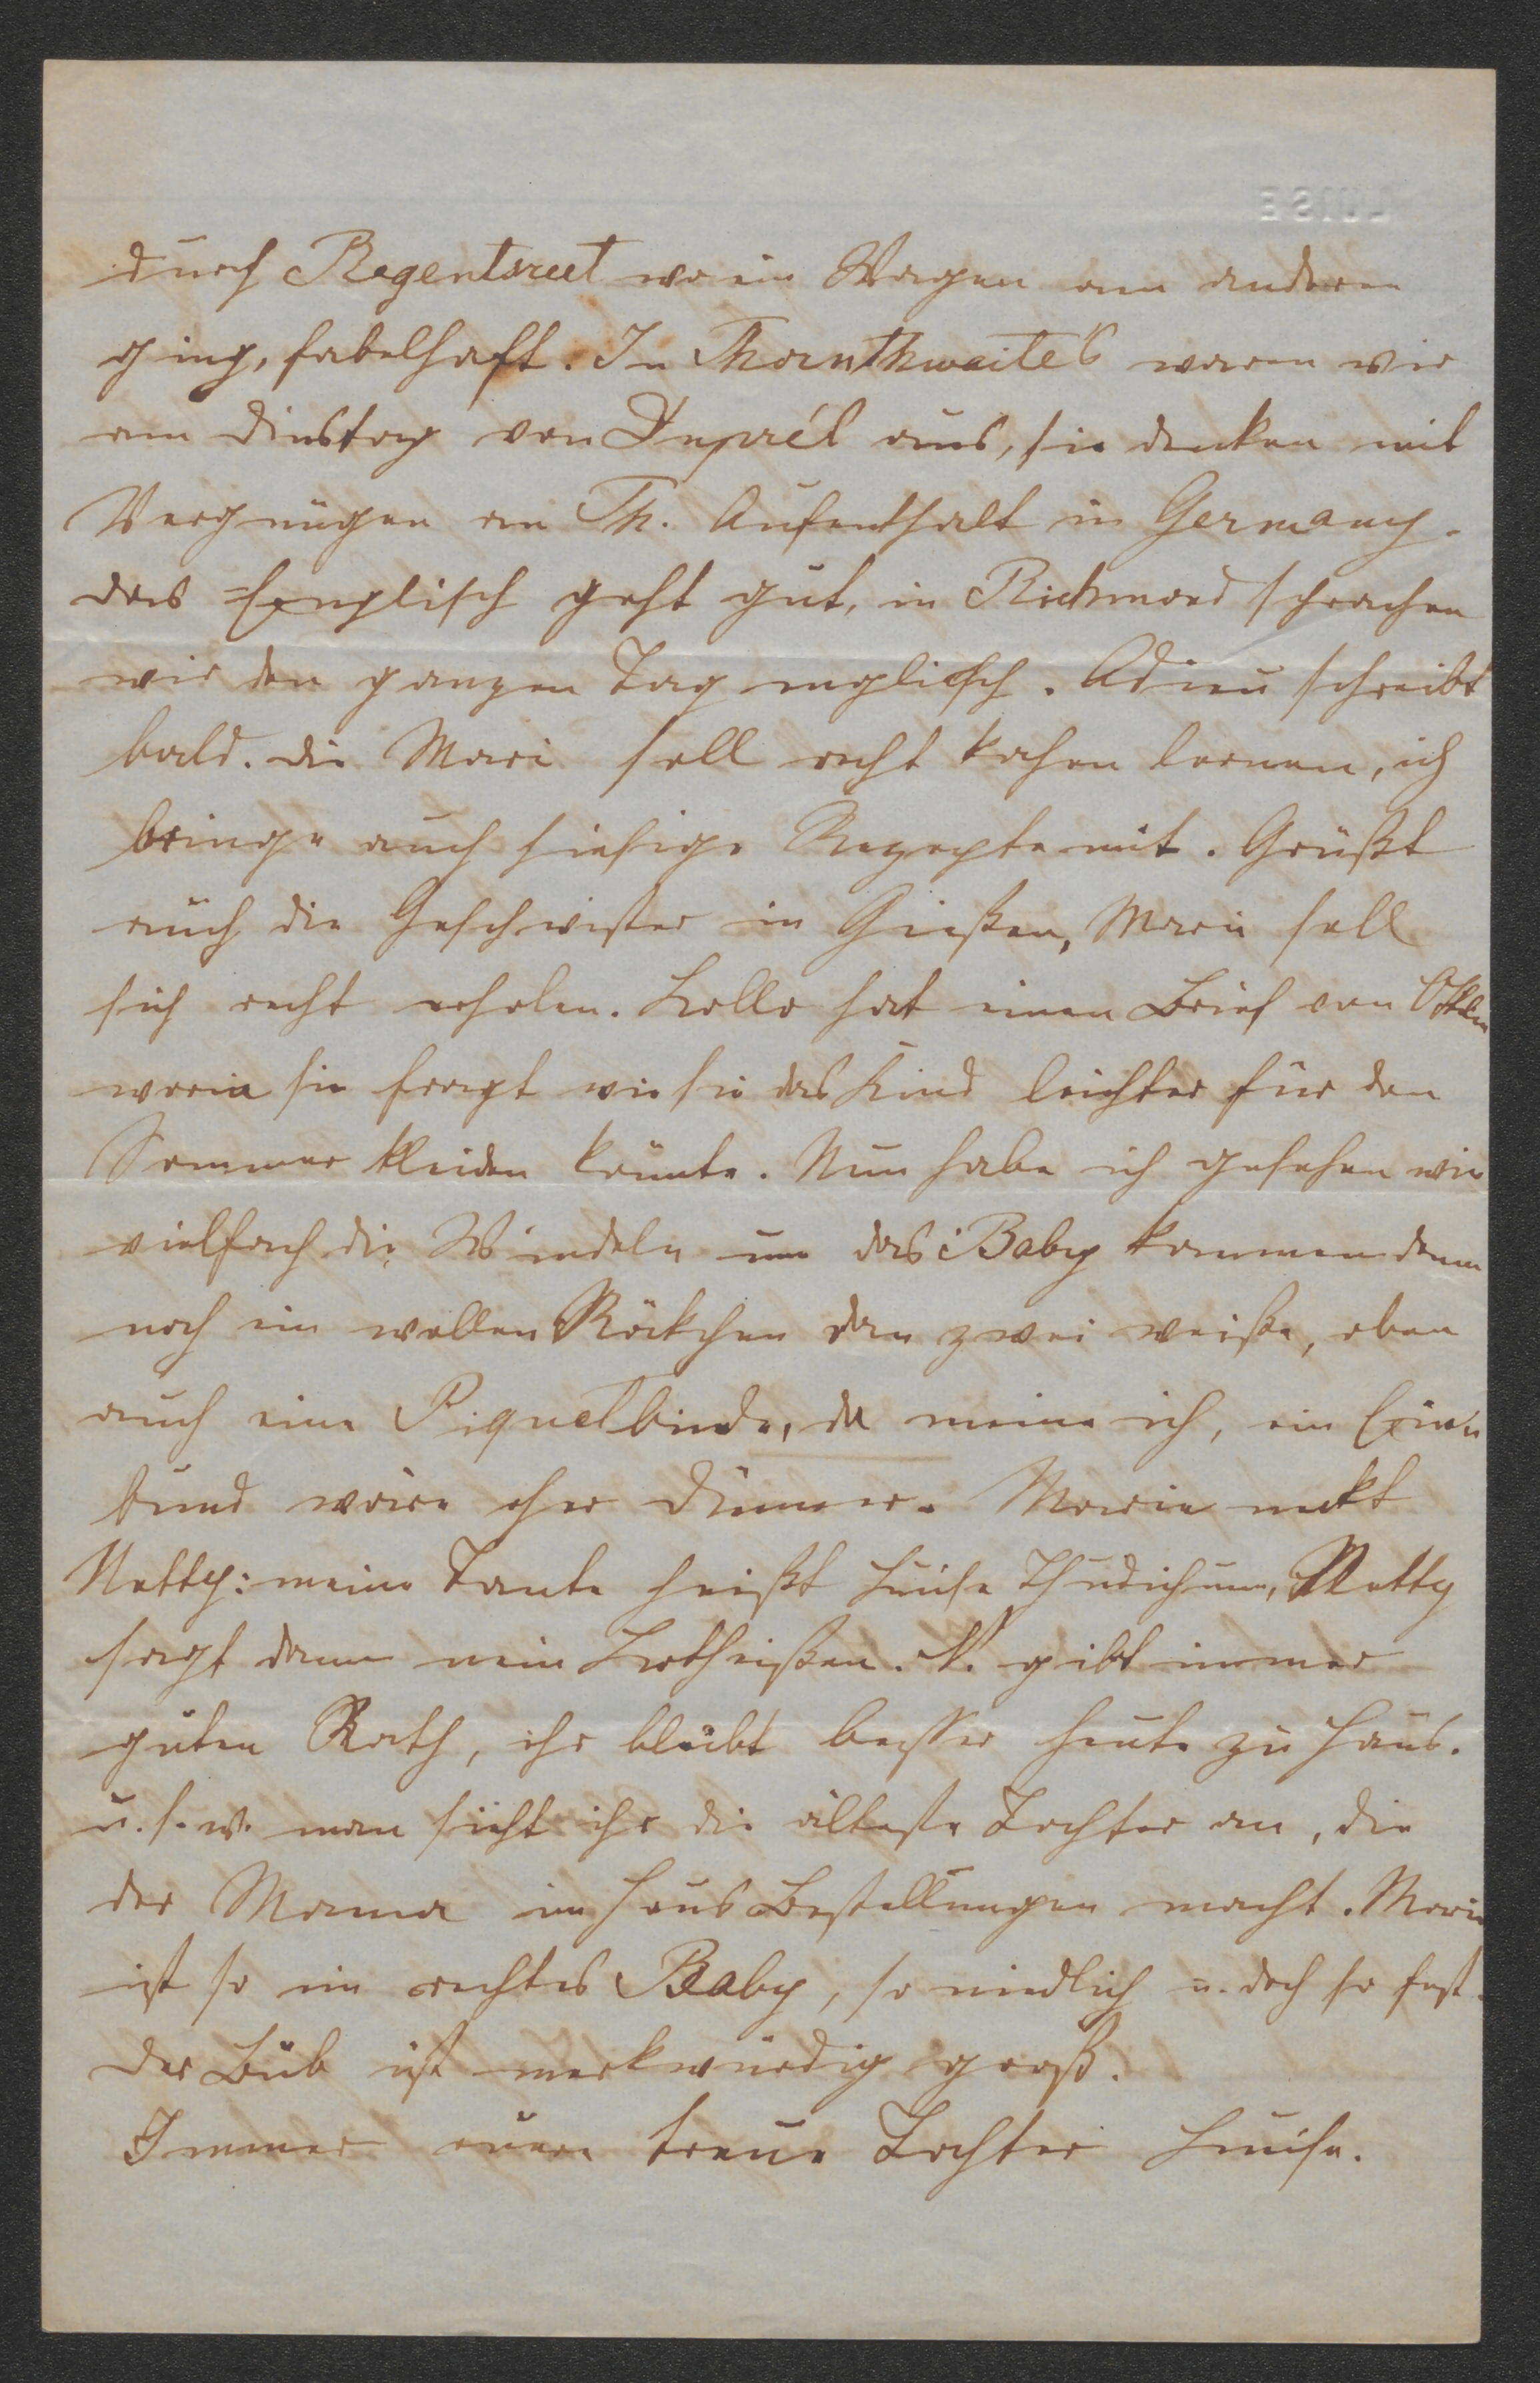 LUISE
durch Regentsreet wo ein Wagen am anderen
ging, fabelhaft. In Thornthwaite's waren wir
am Dinstag von Duprél aus, sie denken mit
Vergnügen an Th. Aufenthalt in Germany.
das Englisch geht gut, in Richmond sprachen
wir den ganzen Tag englisch. Adieu schreibt
bald. die Marie soll recht kochen lernen, ich
bringe auch hiesige Rezepte mit. Grüßt
auch die Geschwister in Gießen, Marie soll
sich recht erholen. Lollo hat einen Brief von
worin sie fragt wie sie das Kind leichter für den
Sommer kleiden könnte. Nun habe ich gesehen wie
vielfach die Windeln um das Baby kommen dann
noch ein wollen Röckchen dan zwei weiße, oben
auch eine Piquetbinde, da meine ich, ein
bund wäre eher dünner. Marie neckt
Netty: meine Tante heißt Luise Thudichum, Netty
sagt dann nein Lotheißen. N. gibt immer
guten Rath, ihr bleibt besser heute zu Haus.
u. s. w. man sieht ihr die älteste Tochter an, die
der Mama im Haus Bestellungen macht. Marie
ist so ein rechtes Baby, so niedlich u. doch so fest.
der Bub ist merkwürdig groß.
Immer eure treue Tochter Luise.